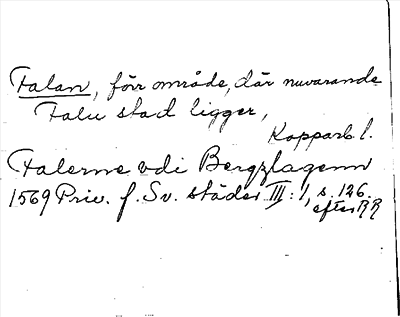 Falan, förr område, där nuvarande
Falu stad ligger,
Kopparb. l.
Falerne vdi Bergzlagenn
1569 Priv. f. Sv. städer III: 1, s. 126.
efter RR